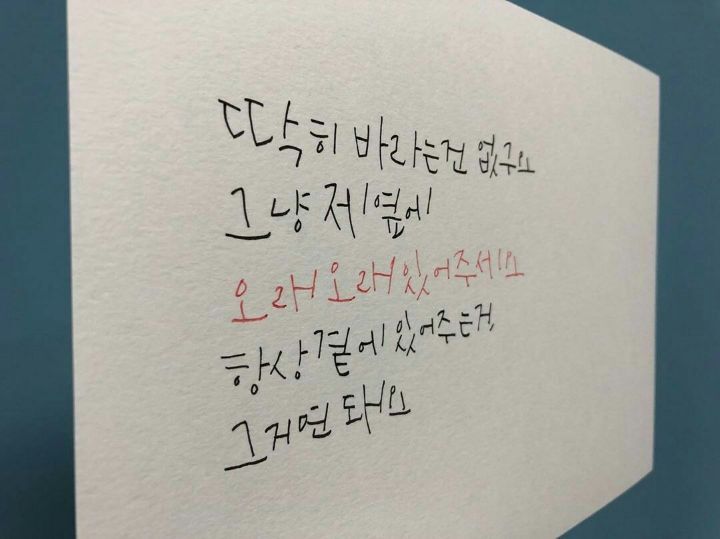 딱히 바라는건 없구요
그냥 제 옆에
오래 오래 있어주세요
항상 곁에 있어주는건,
그거면 돼요